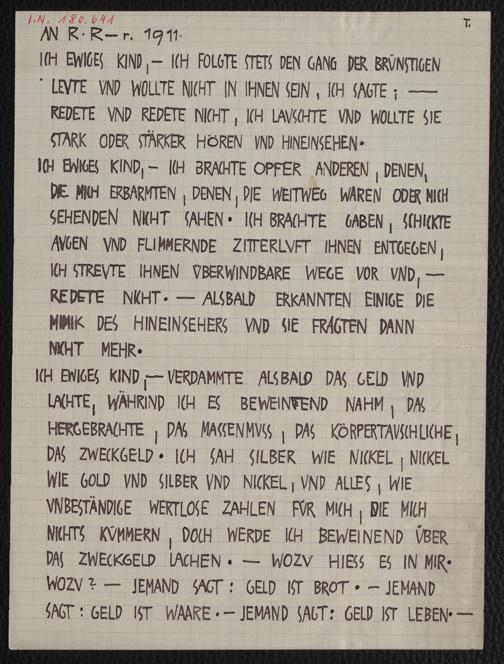 I.N. 180.641
T.
AN R·R—r. 1911·
ICH EWIGES KIND,— ICH FOLGTE STETS DEN GANG DER BRÜNSTIGEN
LEVTE VND WOLLTE NICHT IN IHNEN SEIN, ICH SAGTE; —
REDETE VND REDETE NICHT, ICH LAVSCHTE VND WOLLTE SIE
STARK ODER STÄRKER HÖREN VND HINEINSEHEN·
ICH EWIGES KIND,— ICH BRACHTE OPFER ANDEREN, DENEN,
DIE MICH ERBARMTEN, DENEN, DIE WEITWEG WAREN ODER MICH
SEHENDEN NICHT SAHEN· ICH BRACHTE GABEN, SCHICKTE
AVGEN VND FLIMMERNDE ZITTERLVFT IHNEN ENTGEGEN,
ICH STREVTE IHNEN ÜBERWINDBARE WEGE VOR VND,—
REDETE NICHT·— ALSBALD ERKANNTEN EINIGE DIE
MIMIK DES HINEINSEHERS VND SIE FRAGTEN DANN
NICHT MEHR·
ICH EWIGES KIND,— VERDAMMTE ALSBALD DAS GELD VND
LACHTE, WÄHRIND ICH ES BEWEINTEND NAHM, DAS
HERGEBRACHTE, DAS MASSENMVSS, DAS KÖRPERTAVSCHLICHE,
DAS ZWECKGELD· ICH SAH SILBER WIE NICKEL, NICKEL
WIE GOLD VND SILBER VND NICKEL, VND ALLES, WIE
VNBESTÄNDIGE WERTLOSE ZAHLEN FÜR MICH, DIE MICH
NICHTS KÜMMERN, DOCH WERDE ICH BEWEINEND ÜBER
DAS ZWECKGELD LACHEN·— WOZV HIESS ES IN MIR·
WOZV?— JEMAND SAGT: GELD IST BROT·— JEMAND
SAGT: GELD IST WAARE·— JEMAND SAGT: GELD IST LEBEN·—